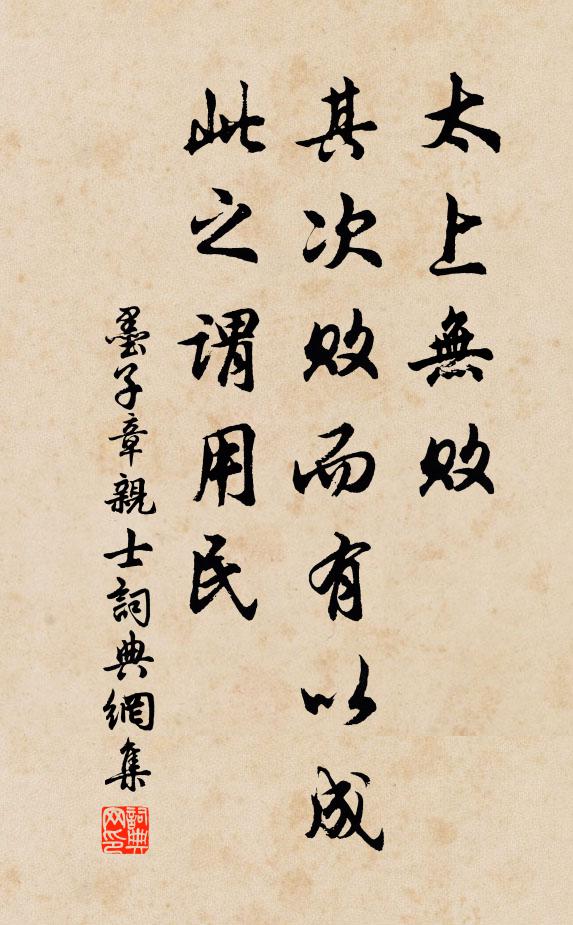 太上無敗
其次敗而有以成
此之謂用民
墨子章親士詞典網集
詞典
网印